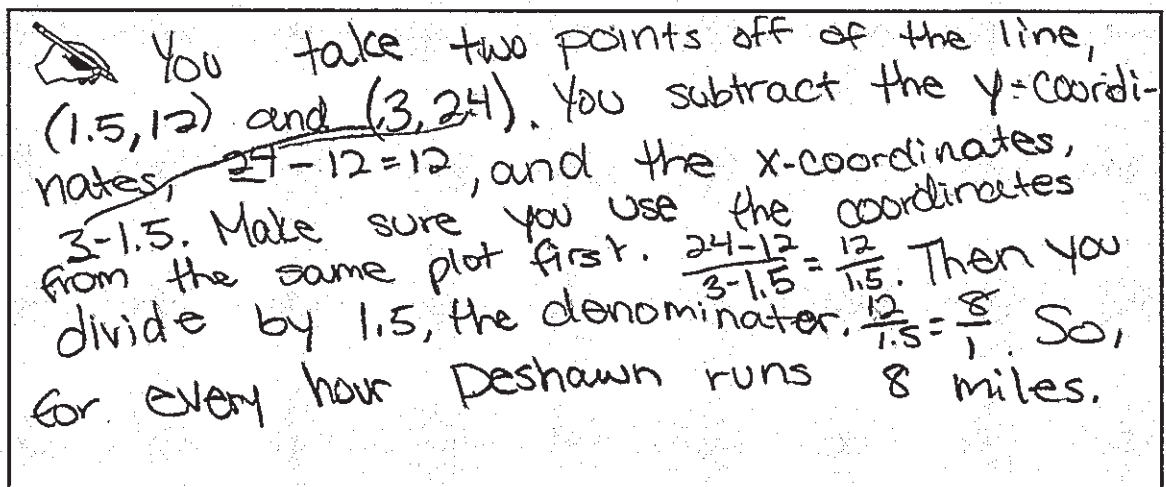 You take two points off of the line,
(1.5,12) and (3,24). You subtract the y-coordi-
nates, 24-12=12, and the x-coordinates,
3-1.5. Make sure you use the coordinates
from the same plot first. 24-12/3-1.5 = 12/1.5. Then you
divide by 1.5, the denominator. 12/1.5 = 8/1. So,
for every hour Deshawn runs 8 miles.